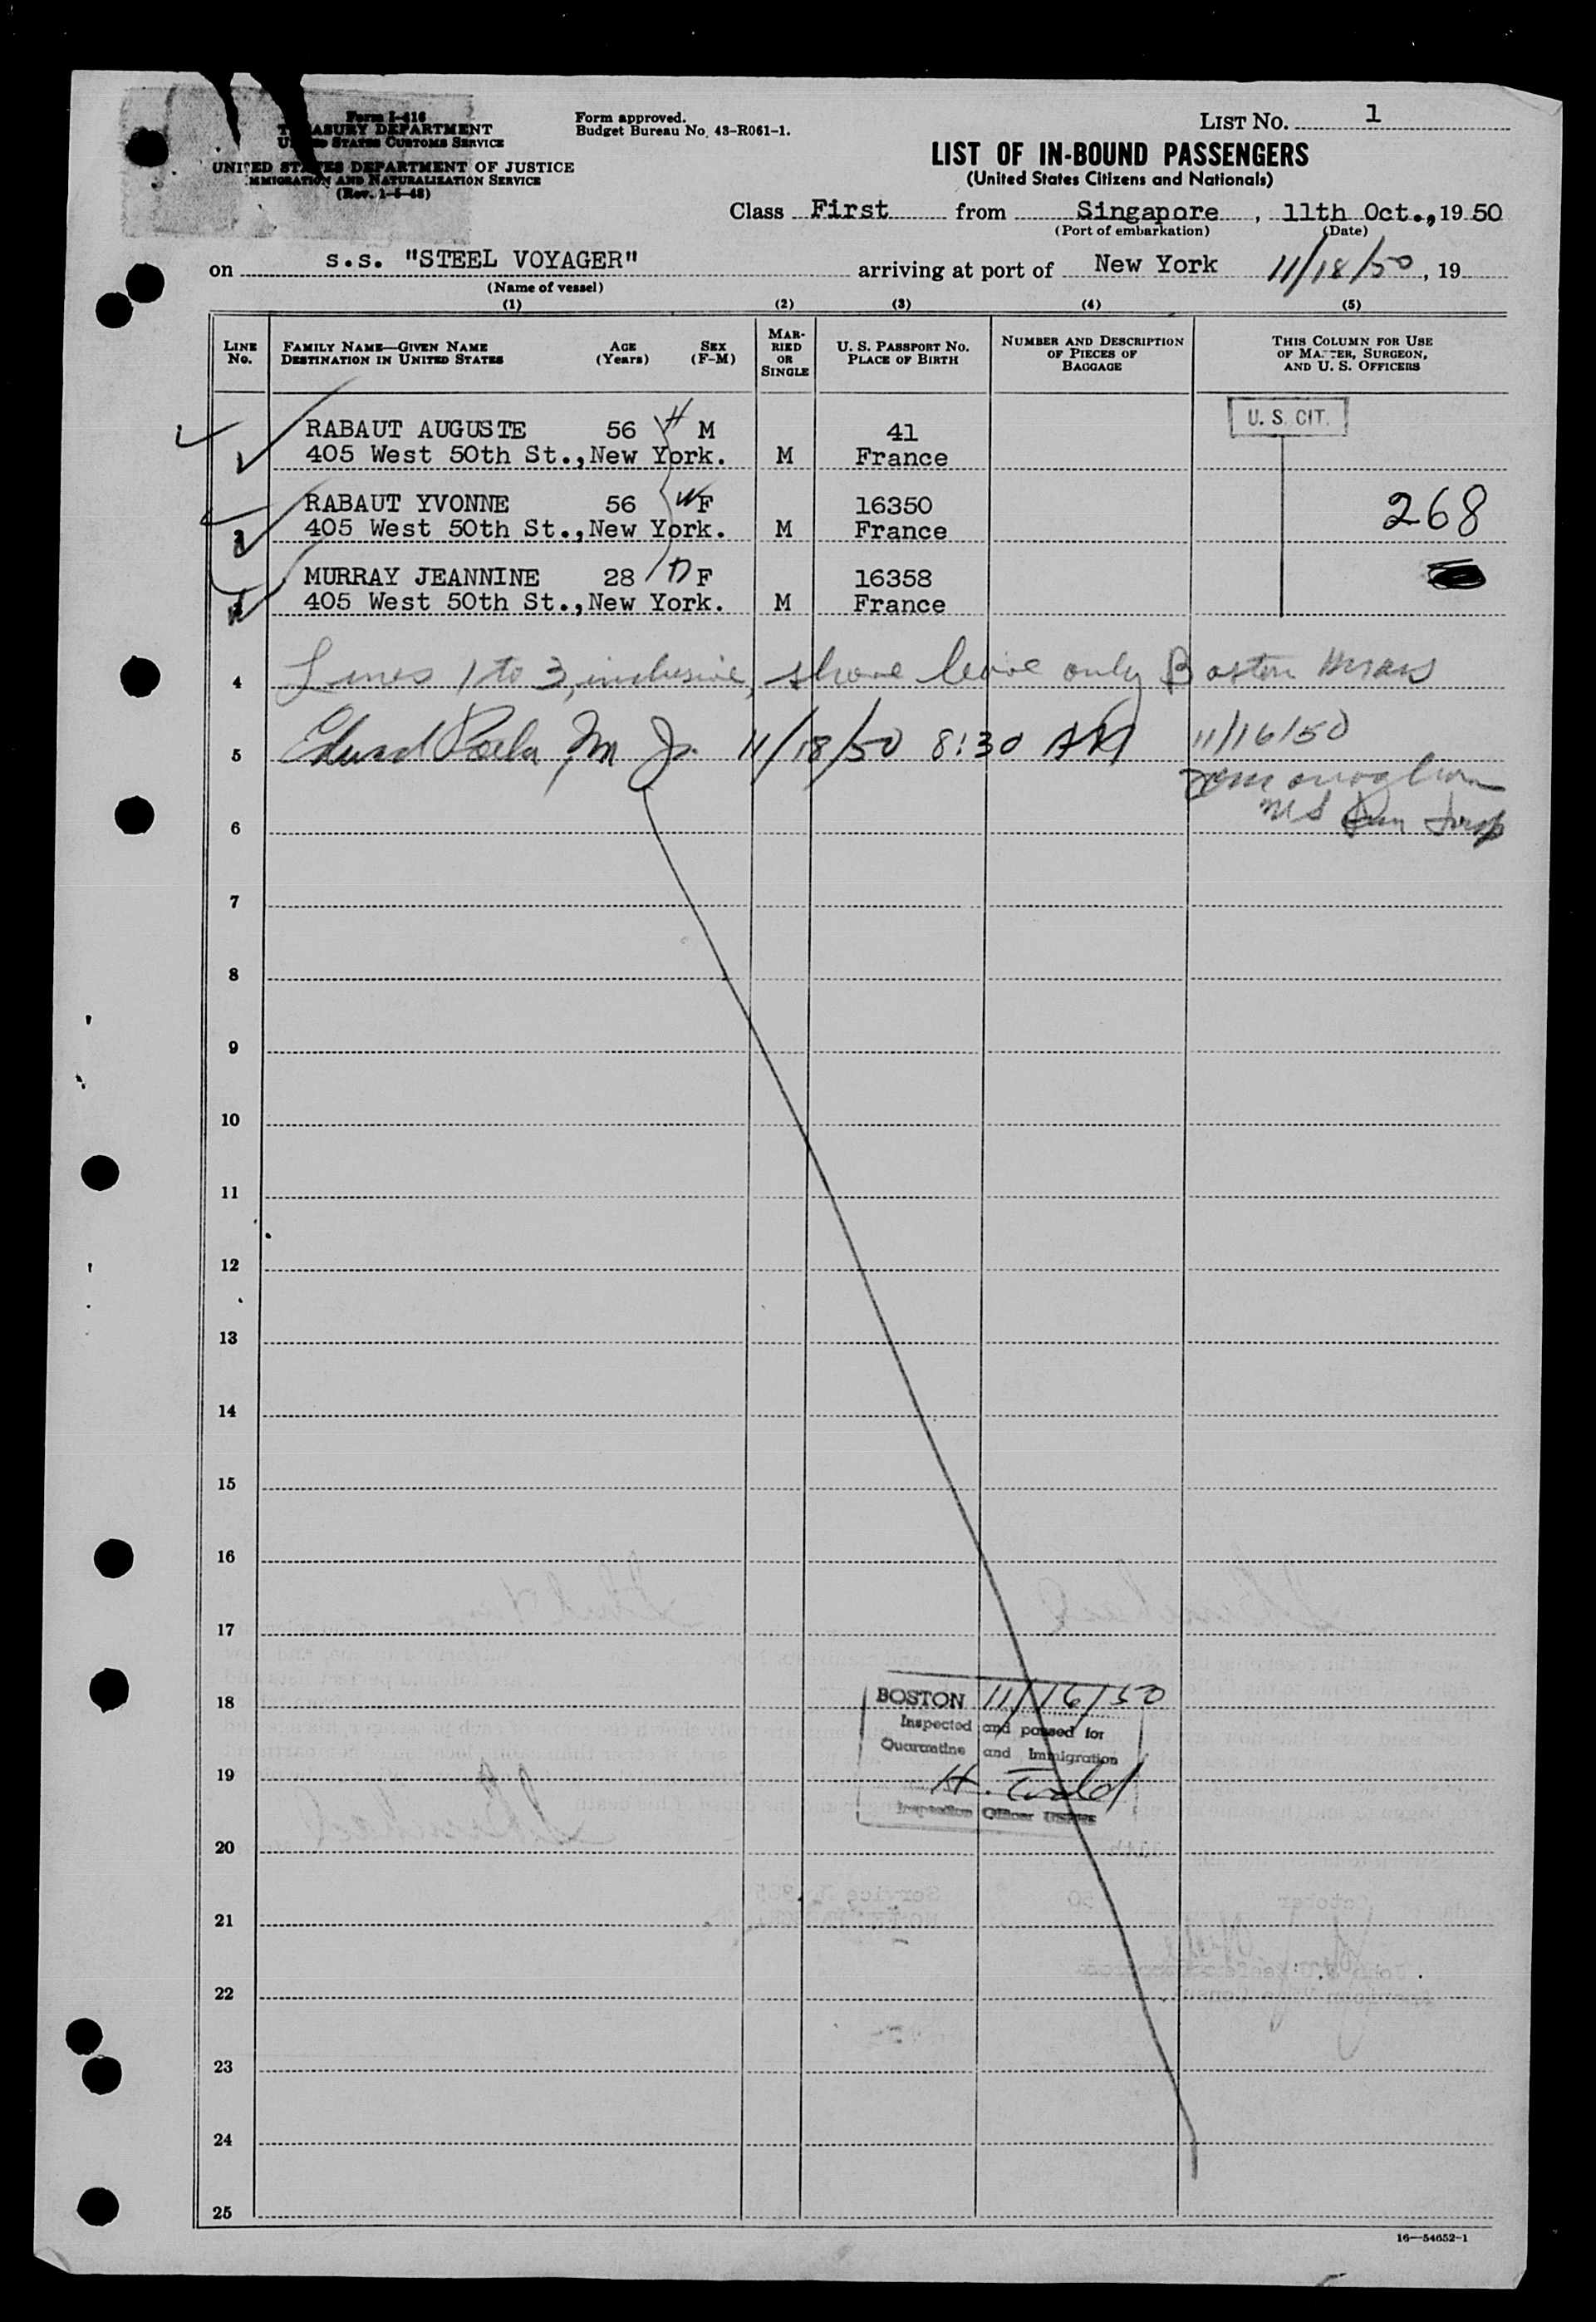 Form I-416
TREASURY DEPARTMENT
UNITED STATES CUSTOMS SERVICE
UNITED STATES DEPARTMENT OF JUSTICE
IMMIGRATION AND NATURALIZATION SERVICE
(Rev. 1-5-48)
Form approved.
Budget Bureau No. 43-R061-1.
LIST NO. 1
LIST OF IN-BOUND PASSENGERS
(United States Citizens and Nationals)
Class First from Singapore, 11th Oct., 19 50
(Port of embarkation) (Date)
on s.s. "STEEL VOYAGER" arriving at port of New York 11/18/50, 19
(Name of vessel)
(1) (2) (3) (4) (5)
LINE No. FAMILY NAME—GIVEN NAME DESTINATION IN UNITED STATES AGE (Years) SEX (F-M) MARRIED OR SINGLE U. S. PASSPORT NO. PLACE OF BIRTH NUMBER AND DESCRIPTION OF PIECES OF BAGGAGE THIS COLUMN FOR USE OF MASTER, SURGEON, AND U. S. OFFICERS
U. S. CIT.
RABAUT AUGUSTE 56 H M 41
1 405 West 50th St., New York. M France
RABAUT YVONNE 56 W F 16350 268
2 405 West 50th St., New York. M France
MURRAY JEANNINE 28 D F 16358
405 West 50th St., New York. M France
4 Lines 1 to 3, inclusive, shore leave only Boston Mass
5 11/18/50 8:30 AM 11/16/50
6
7
8
9
10
11
12
13
14
15
16
17
18 BOSTON 11/16/50
Inspected and passed for
Quarantine and Immigration
19 H.
Inspection Officer USPHS
20
21
22
23
24
25
16—54652-1